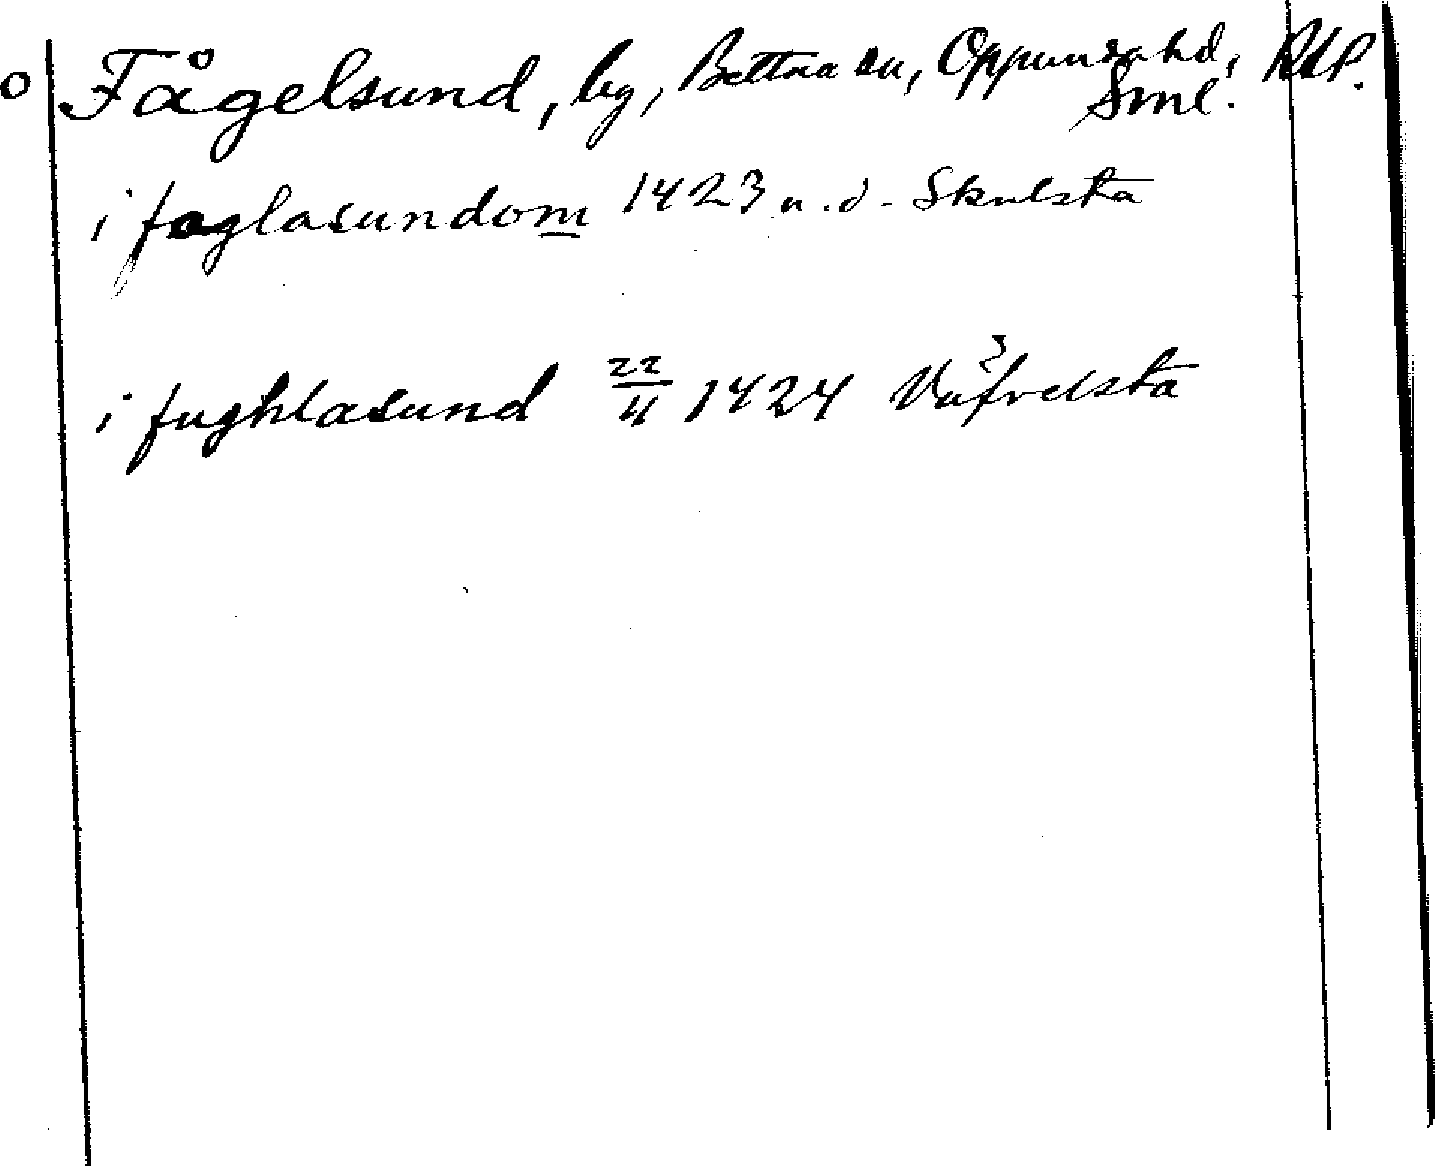 o Fågelsund, by, Bettna sn, Oppunda hd, RAP.
Sml.
i foglasundom 1423 u.d. Skulsta
i fughlasund 22/11 1424